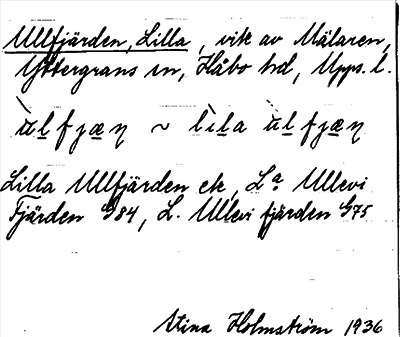 Ullfjärden, Lilla, vik av Mälaren,
Yttergrans sn, Håbo hd, Upps. l.
ùl̲fjæ̲ņ ~ lìl̲a ùl̲fjæ̲ņ
Lilla Ullfjärden ek, Lª Ullevi
Fjärden G84, L. Ullevi fjärden G75
Stina Holmström 1936